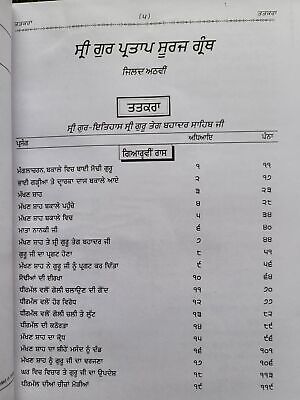 ਤਤਕਰਾ (੫) ਤਤਕਰਾ
ਸ੍ਰੀ ਗੁਰ ਪ੍ਰਤਾਪ ਸੂਰਜ ਗ੍ਰੰਥ
ਜਿਲਦ ਅਠਵੀਂ
ਤਤਕਰਾ
ਸ੍ਰੀ ਗੁਰ-ਇਤਿਹਾਸ ਸ੍ਰੀ ਗੁਰੂ ਤੇਗ ਬਹਾਦਰ ਸਾਹਿਬ ਜੀ
ਪ੍ਰਸੰਗ ਅਧਿਆਇ ਪੰਨਾ
ਗਿਆਰ੍ਹਵੀਂ ਰਾਸ
ਮੰਗਲਾਚਰਨ, ਬਕਾਲੇ ਵਿਚ ਬਾਈ ਸੋਢੀ ਗੁਰੂ ੧ ੧੧
ਭਾਈ ਗੜ੍ਹੀਆ ਤੇ ਦ੍ਵਾਰਕਾ ਦਾਸ ਬਕਾਲੇ ਆਏ ੨ ੧੭
ਮੱਖਣ ਸ਼ਾਹ ੩ ੨੩
ਮੱਖਣ ਸ਼ਾਹ ਬਕਾਲੇ ਪਹੁੰਚੇ ੪ ੨੮
ਮੱਖਣ ਸ਼ਾਹ ਬਕਾਲੇ ਵਿਚ ੫ ੩੪
ਮਾਤਾ ਨਾਨਕੀ ਜੀ ੬ ੩੯
ਮੱਖਣ ਸ਼ਾਹ ਤੇ ਸ੍ਰੀ ਗੁਰੂ ਤੇਗ ਬਹਾਦਰ ਜੀ ੭ ੪੪
ਗੁਰੂ ਜੀ ਦਾ ਪ੍ਰਗਟ ਹੋਣਾ ੮ ੫੧
ਮੱਖਣ ਸ਼ਾਹ ਨੇ ਗੁਰੂ ਜੀ ਨੂੰ ਪ੍ਰਗਟ ਕਰ ਦਿੱਤਾ ੯ ੫੬
ਸੋਢੀਆਂ ਦੀ ਈਰਖਾ ੧੦ ੬੪
ਧੀਰਮੱਲ ਵਲੋਂ ਗੋਲੀ ਚਲਾਉਣ ਦੀ ਗੋਂਦ ੧੧
ਧੀਰਮੱਲ ਵਲੋਂ ਹੋਰ ਵਿਰੋਧ ੧੨ ੭੭
ਧੀਰਮੱਲ ਵਲੋਂ ਗੋਲੀ ਚਲੀ ਤੇ ਲੁੱਟ ੧੩ ੮੨
ਧੀਰਮੱਲ ਦੀ ਕਠੋਰਤਾ ੧੪ ੮੯
ਮੱਖਣ ਸ਼ਾਹ ਦਾ ਕ੍ਰੋਧ ੧੫
ਮੱਖਣ ਸ਼ਾਹ ਦਾ ਸ਼ੀਹੇਂ ਮਸੰਦ ਨੂੰ ਦੰਡ ੧੬ ੧੦੧
ਮੱਖਣ ਸ਼ਾਹ ਨੂੰ ਗੁਰੂ ਜੀ ਦਾ ਵਰਜਣਾ ੧੭
ਘਰ ਵਿਚ ਵਿਚਾਰ ਤੇ ਗੁਰੂ ਜੀ ਦਾ ਉਪਦੇਸ਼ ੧੮
ਧੀਰਮੱਲ ਦੀਆਂ ਚੀਜ਼ਾਂ ਮੋੜੀਆਂ ੧੯ ੧੧੯